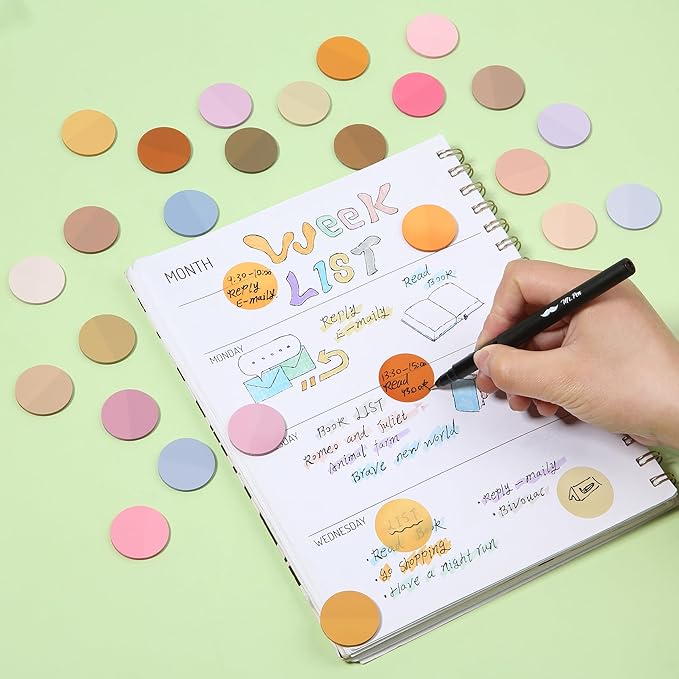 MONTH
WEEK
LIST
9:30-10:00
Reply
E-maily
Reply
E-maily
Read
Book
MONDAY
13:30-15:00
Read
DAY
BOOK LIST
Romeo and Juliet
Animal farm
Brave new world
WEDNESDAY
LIST
• Read Book
• go shopping
• Have a night run
• Reply -maily
• Bivouac
Mr. Pen